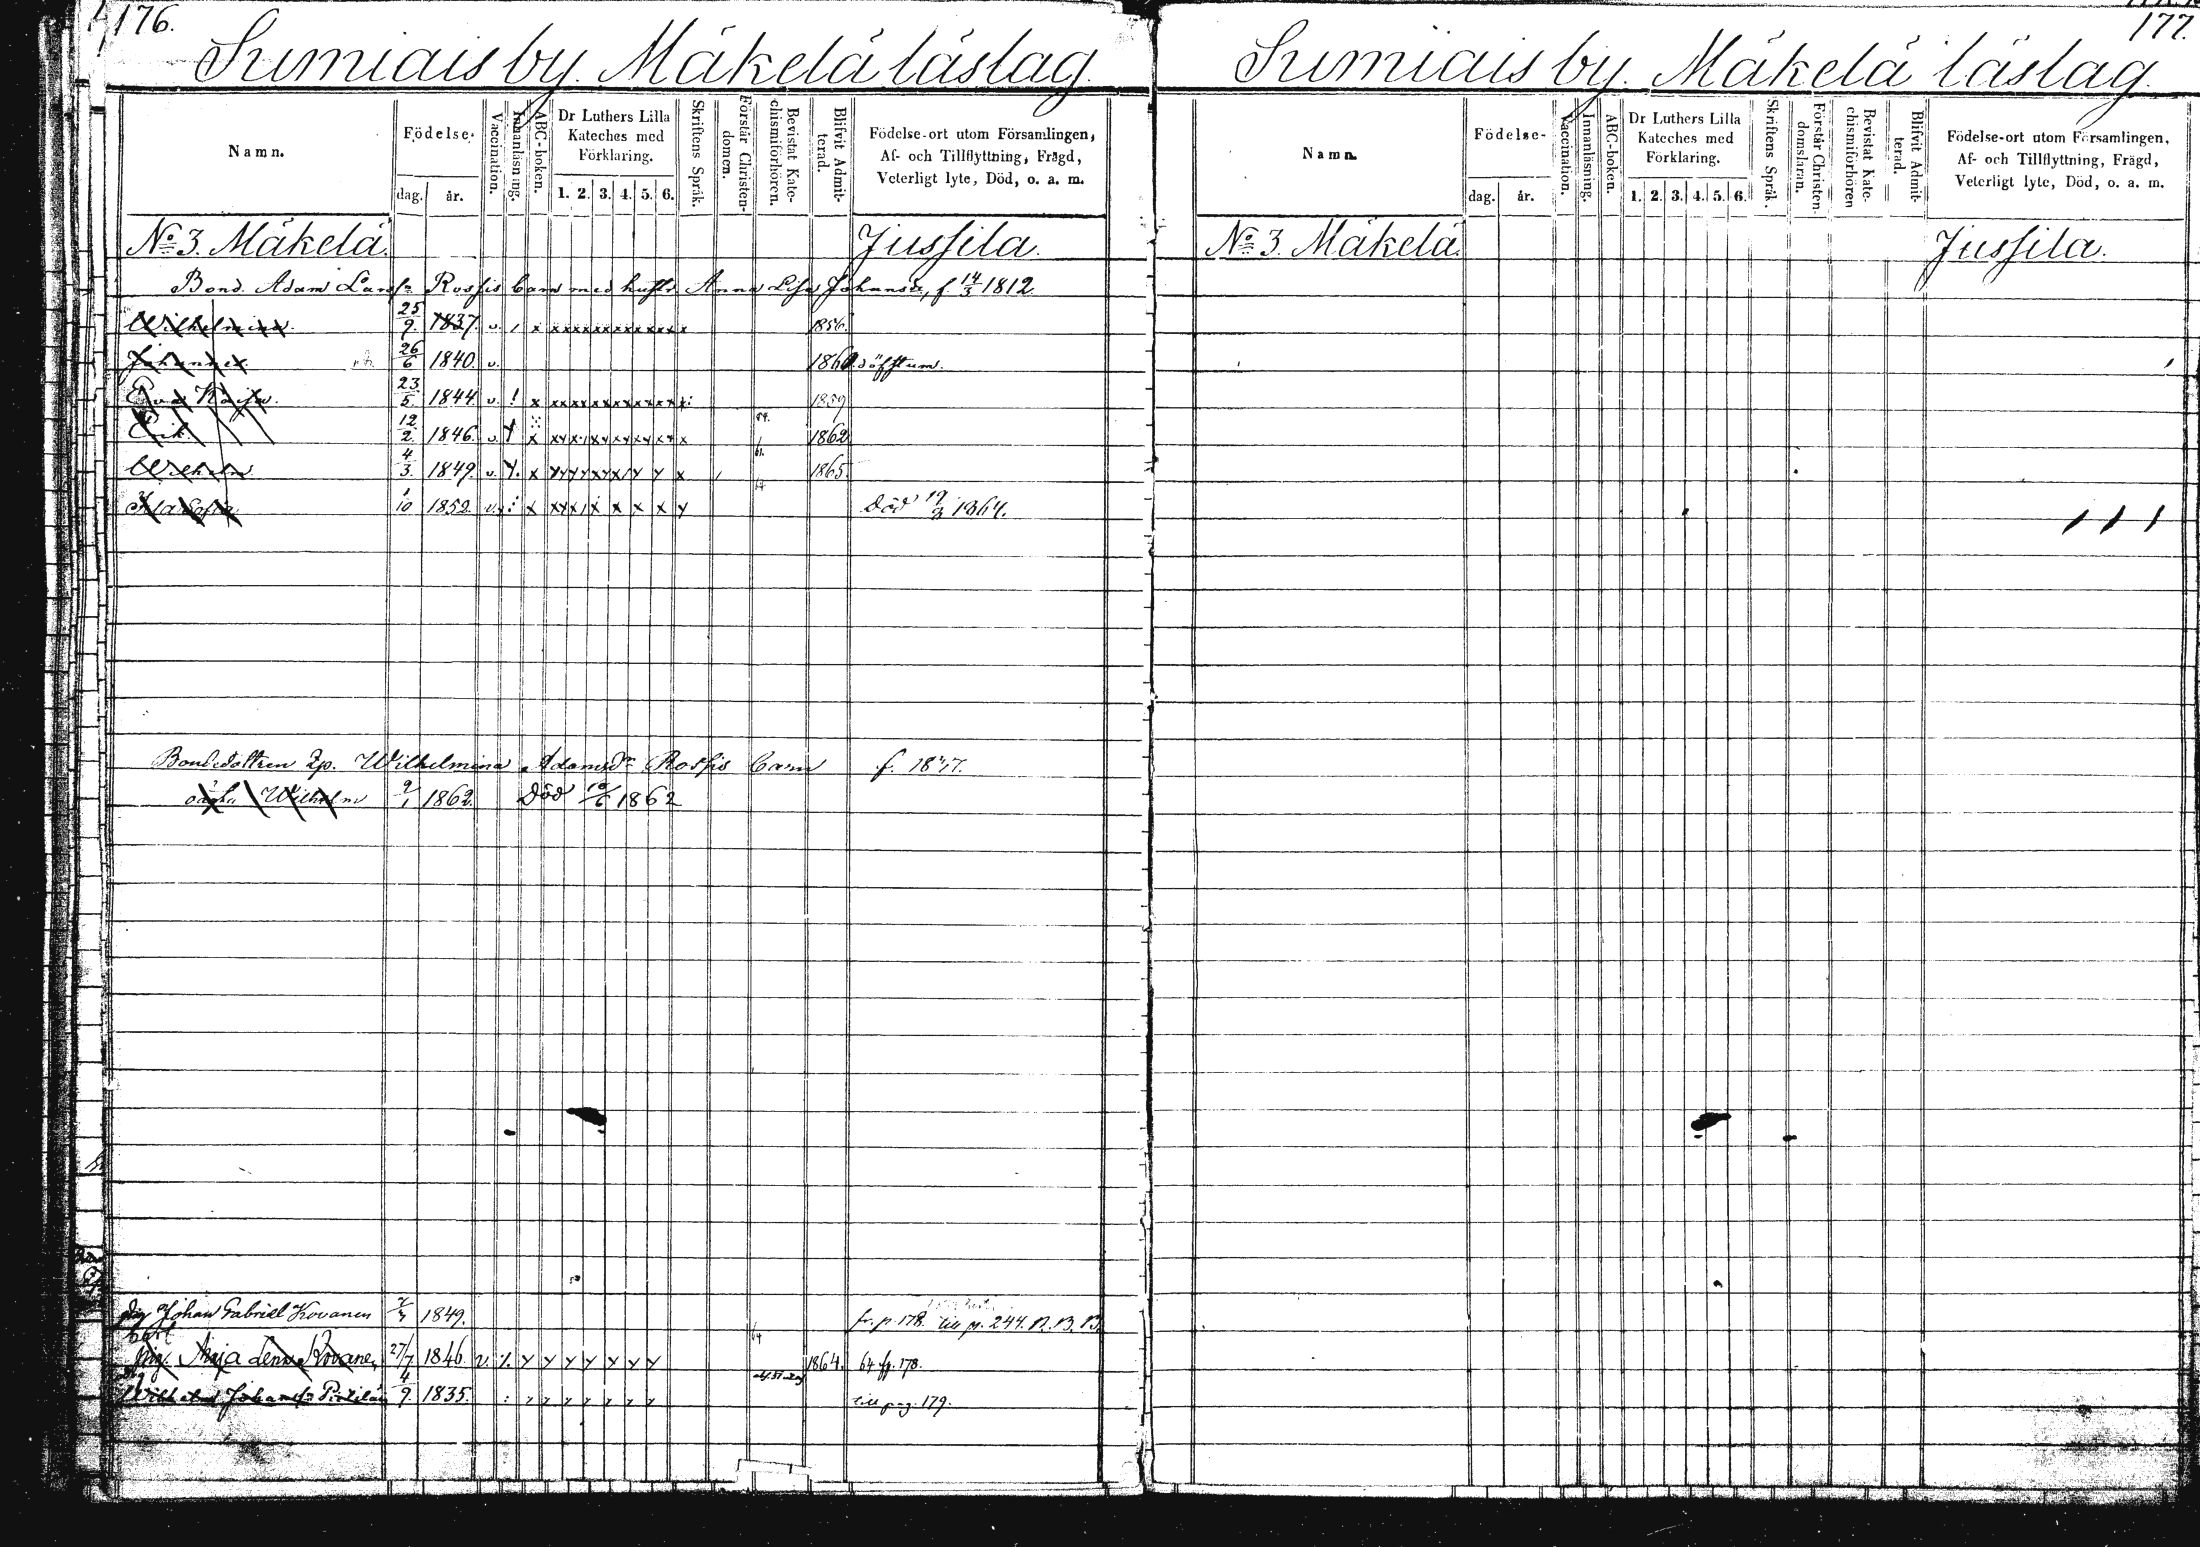 176.
Sumiais by. Mäkelä läslag.
Namn.
Födelse-
dag. år.
Vaccination.
Innanläsning.
ABC-boken.
Dr Luthers Lilla Kateches med Förklaring.
1. 2. 3. 4. 5. 6.
Skriftens Språk.
Förstår Christendomen.
Bevistat Katechismiförhören.
Blifvit Admitterad.
Födelse-ort utom Församlingen, Af- och Tillflyttning, Frägd, Veterligt lyte, Död, o. a. m.
No 3. Mäkelä. Jussila.
Bond. Adam Larss. Rossis barn med hustr. Anna Lisa Johansdr, f 14/3 1812.
Wilhelmina. 25/9 1837. v. 1856.
Johannes 26/6 1840. v. 1860. döfstum.
Eva Kaisa. 23/5 1844. v. 1859
Erik. 12/2 1846. v. 1862
Wilhelm 4/3 1849. v. 1865.
Sofia 1/10 1852. v. Död 19/3 1864.
Bondedottren Wilhelmina Adamsdr Rossis barn f. 1837.
oäkta Wilhelm 9/1 1862. Död 10/6 1862
Johan Gabriel Kovanen 1849. fr. p. 178. till p. 244.
Maja Lena Kovanen 27/7 1846. v. 1864. 64 fr. p. 178.
Wilhelm Johanss. 4/9 1835. till pag. 179.
177.
Sumiais by. Mäkelä läslag.
Namn.
Födelse-
dag. år.
Vaccination.
Innanläsning.
ABC-boken.
Dr Luthers Lilla Kateches med Förklaring.
1. 2. 3. 4. 5. 6.
Skriftens Språk.
Förstår Christendomslaran.
Bevistat Katechismiförhören
Blifvit Admitterad.
Födelse-ort utom Församlingen, Af- och Tillflyttning, Frägd, Veterligt lyte, Död, o. a. m.
No 3. Mäkelä. Jussila.